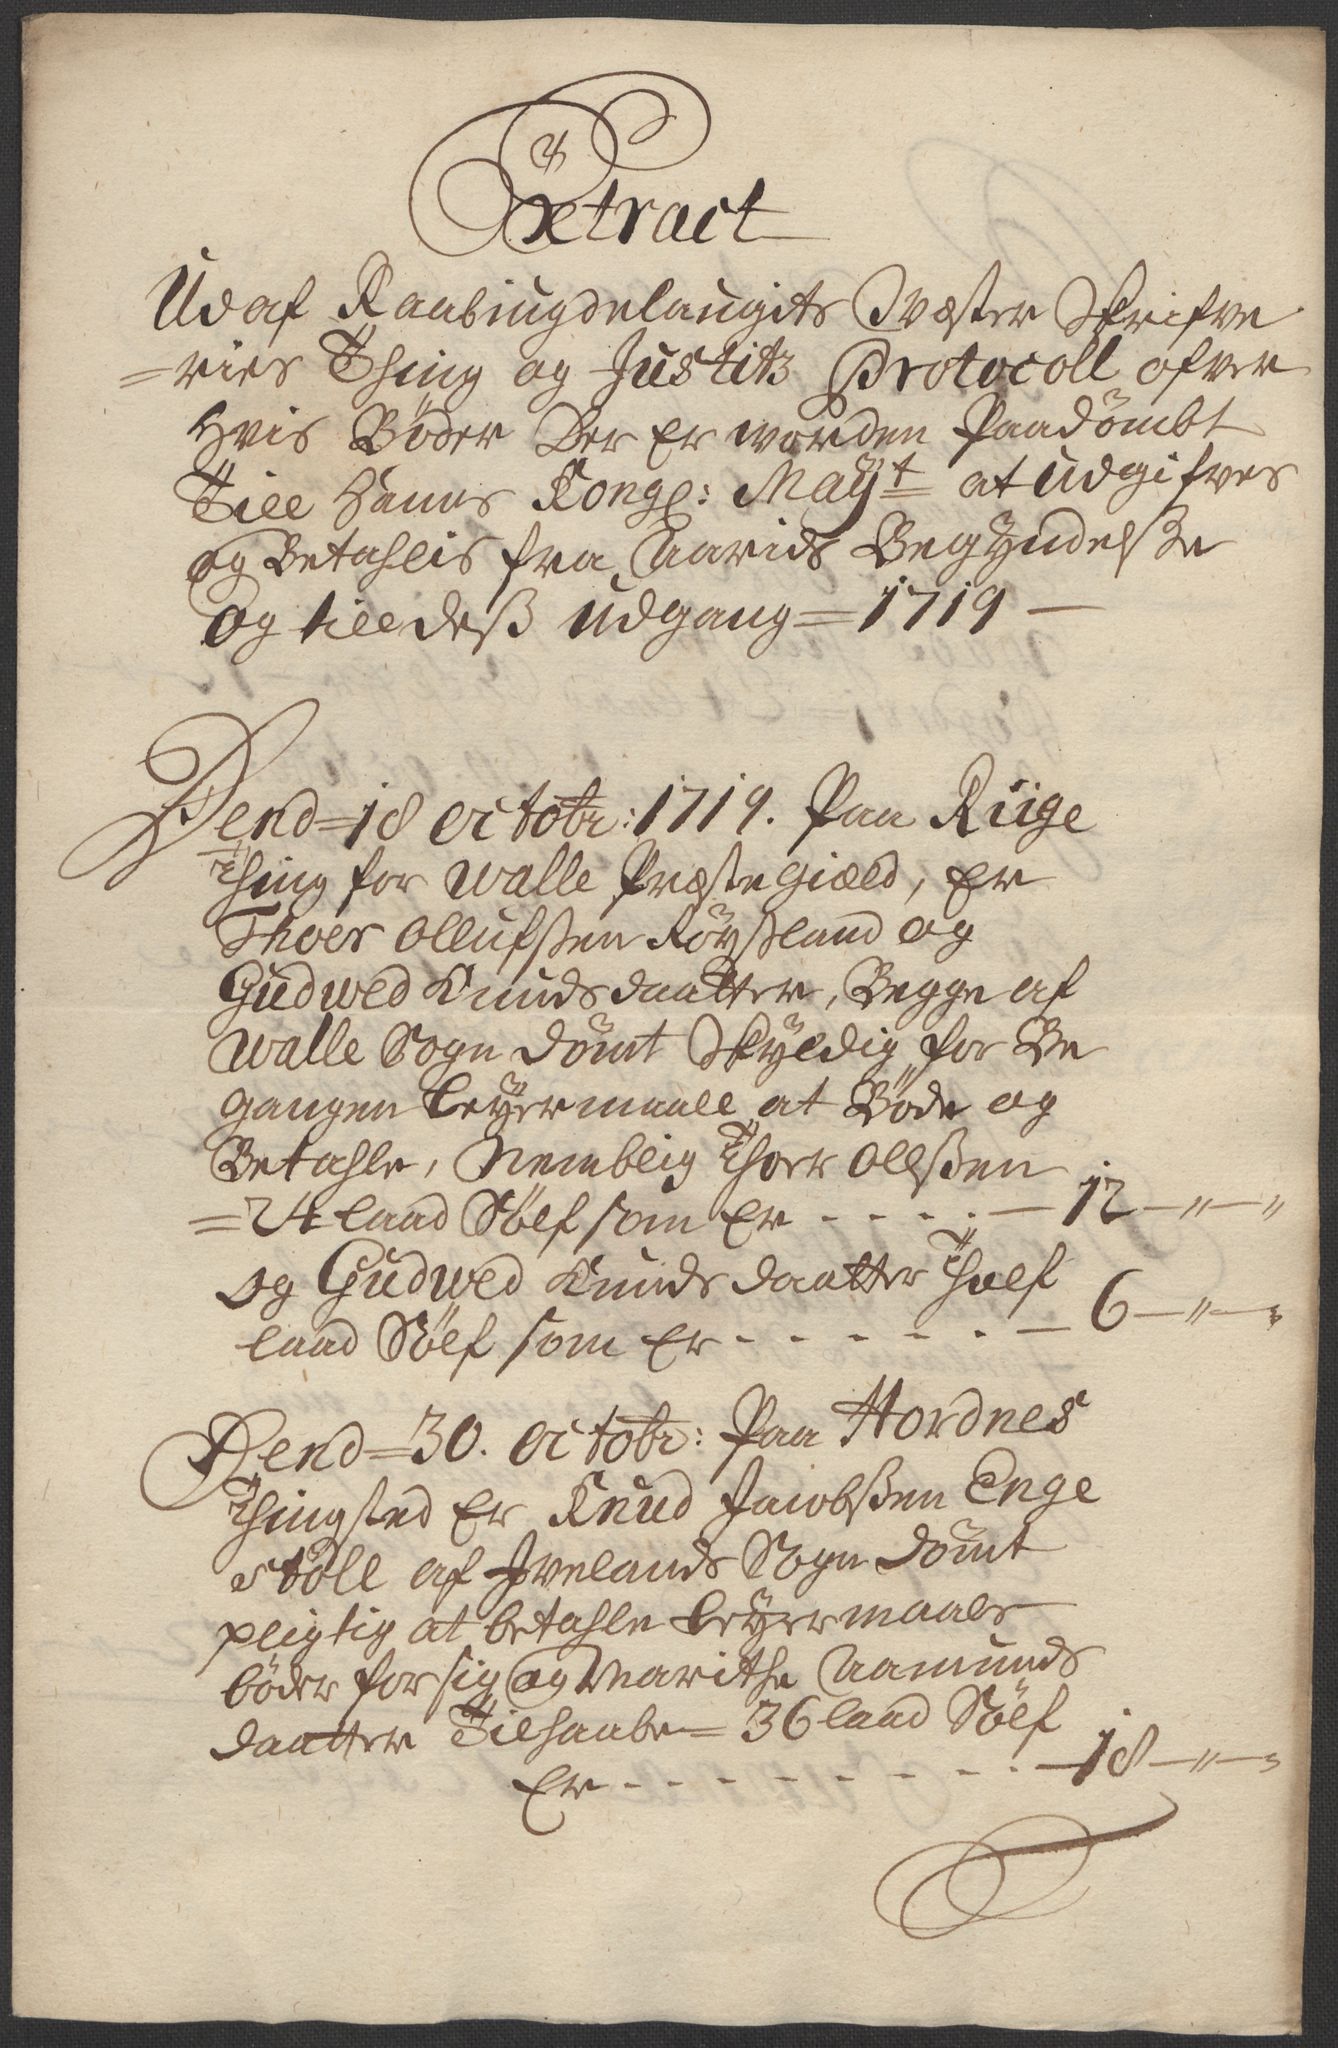 Extract
Ud af Raabÿugdelaugits Wæster Skrifve
=ries Thing og Justitz Protocoll ofver
hvis Bøder Der Er worden Paadömbt
Till Hanns Kongl: Maÿt at udgifves
og Betahlis fra Aarids Begÿndelße
og till deß udgang = 1719 —
Dend = 18 octobr: 1719. Paa Riige
Thing for Walle Præstegiæld, Er
Thoer Ollufßen Röÿßland og
Gudwed Knuds daatter, Begge af
Walle Sogn dömt Skÿldig for Be
gangen Leÿermaall at Böde og
Betahle, Nemblig Thoer Ollßen
= 24 laad Sölf som Er - - - - — 12 — „ — „
og Gudwed Knuds daatter Tholf
laad Sölf som Er - - - - - - — 6 — „ — „
Dend = 30. octobr: Paa Hordnes
Thingsted Er Knud Jacobßen Enge
stöll af Ivelands Sogn dömt
pligtig at betahle Leÿermaals
böder for sig og Marithe Aamunds
daatter Tilhaabe = 36 laad Sölf
Er - - - - - - - - - — 18 — „ — „